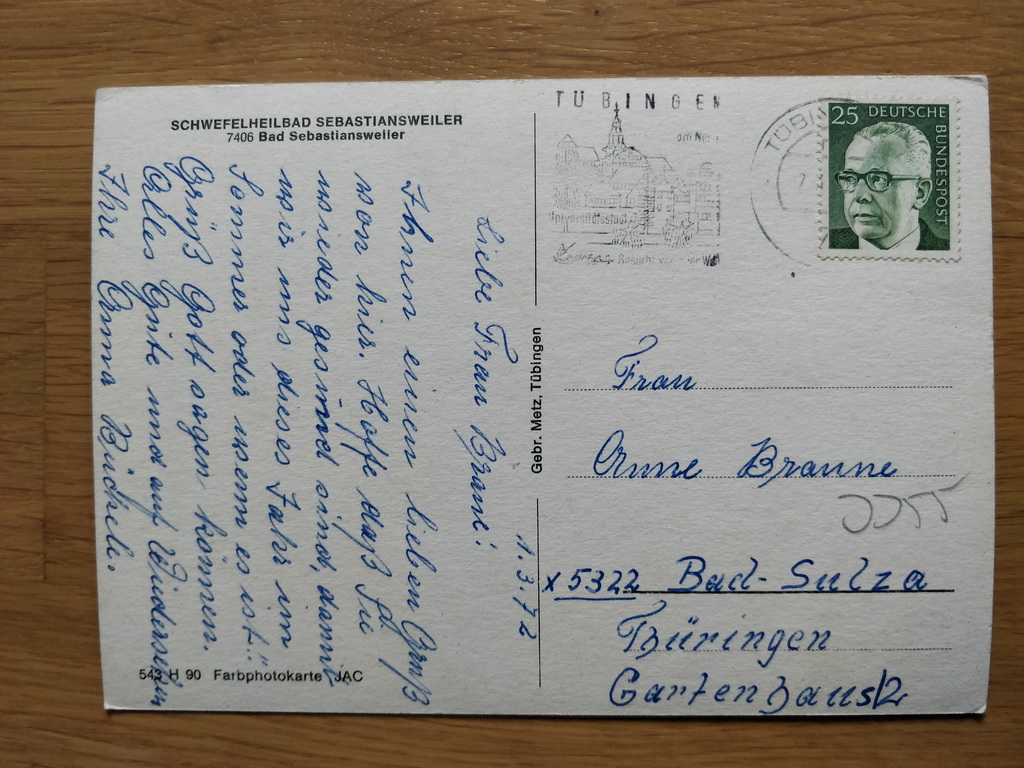 SCHWEFELHEILBAD SEBASTIANSWEILER
7406 Bad Sebastiansweiler
1.3.72
Liebe Frau Braun!
Ihnen einen lieben Gruß
von hier. Hoffe daß Sie
wieder gesund sind, damit
wir uns dieses Jahr im
Sommer oder wenn es ist
Grüß Gott sagen können.
Alles Gute und auf Wiedersehen
Ihre Anna
543 H 90 Farbphotokarte JAC
Gebr. Metz, Tübingen
TÜBINGEN
am
Universitätsstadt
TÜBIN
25 DEUTSCHE
BUNDESPOST
Frau
Anne Braune
x 5322 Bad-Sulza
Thüringen
Gartenhaus